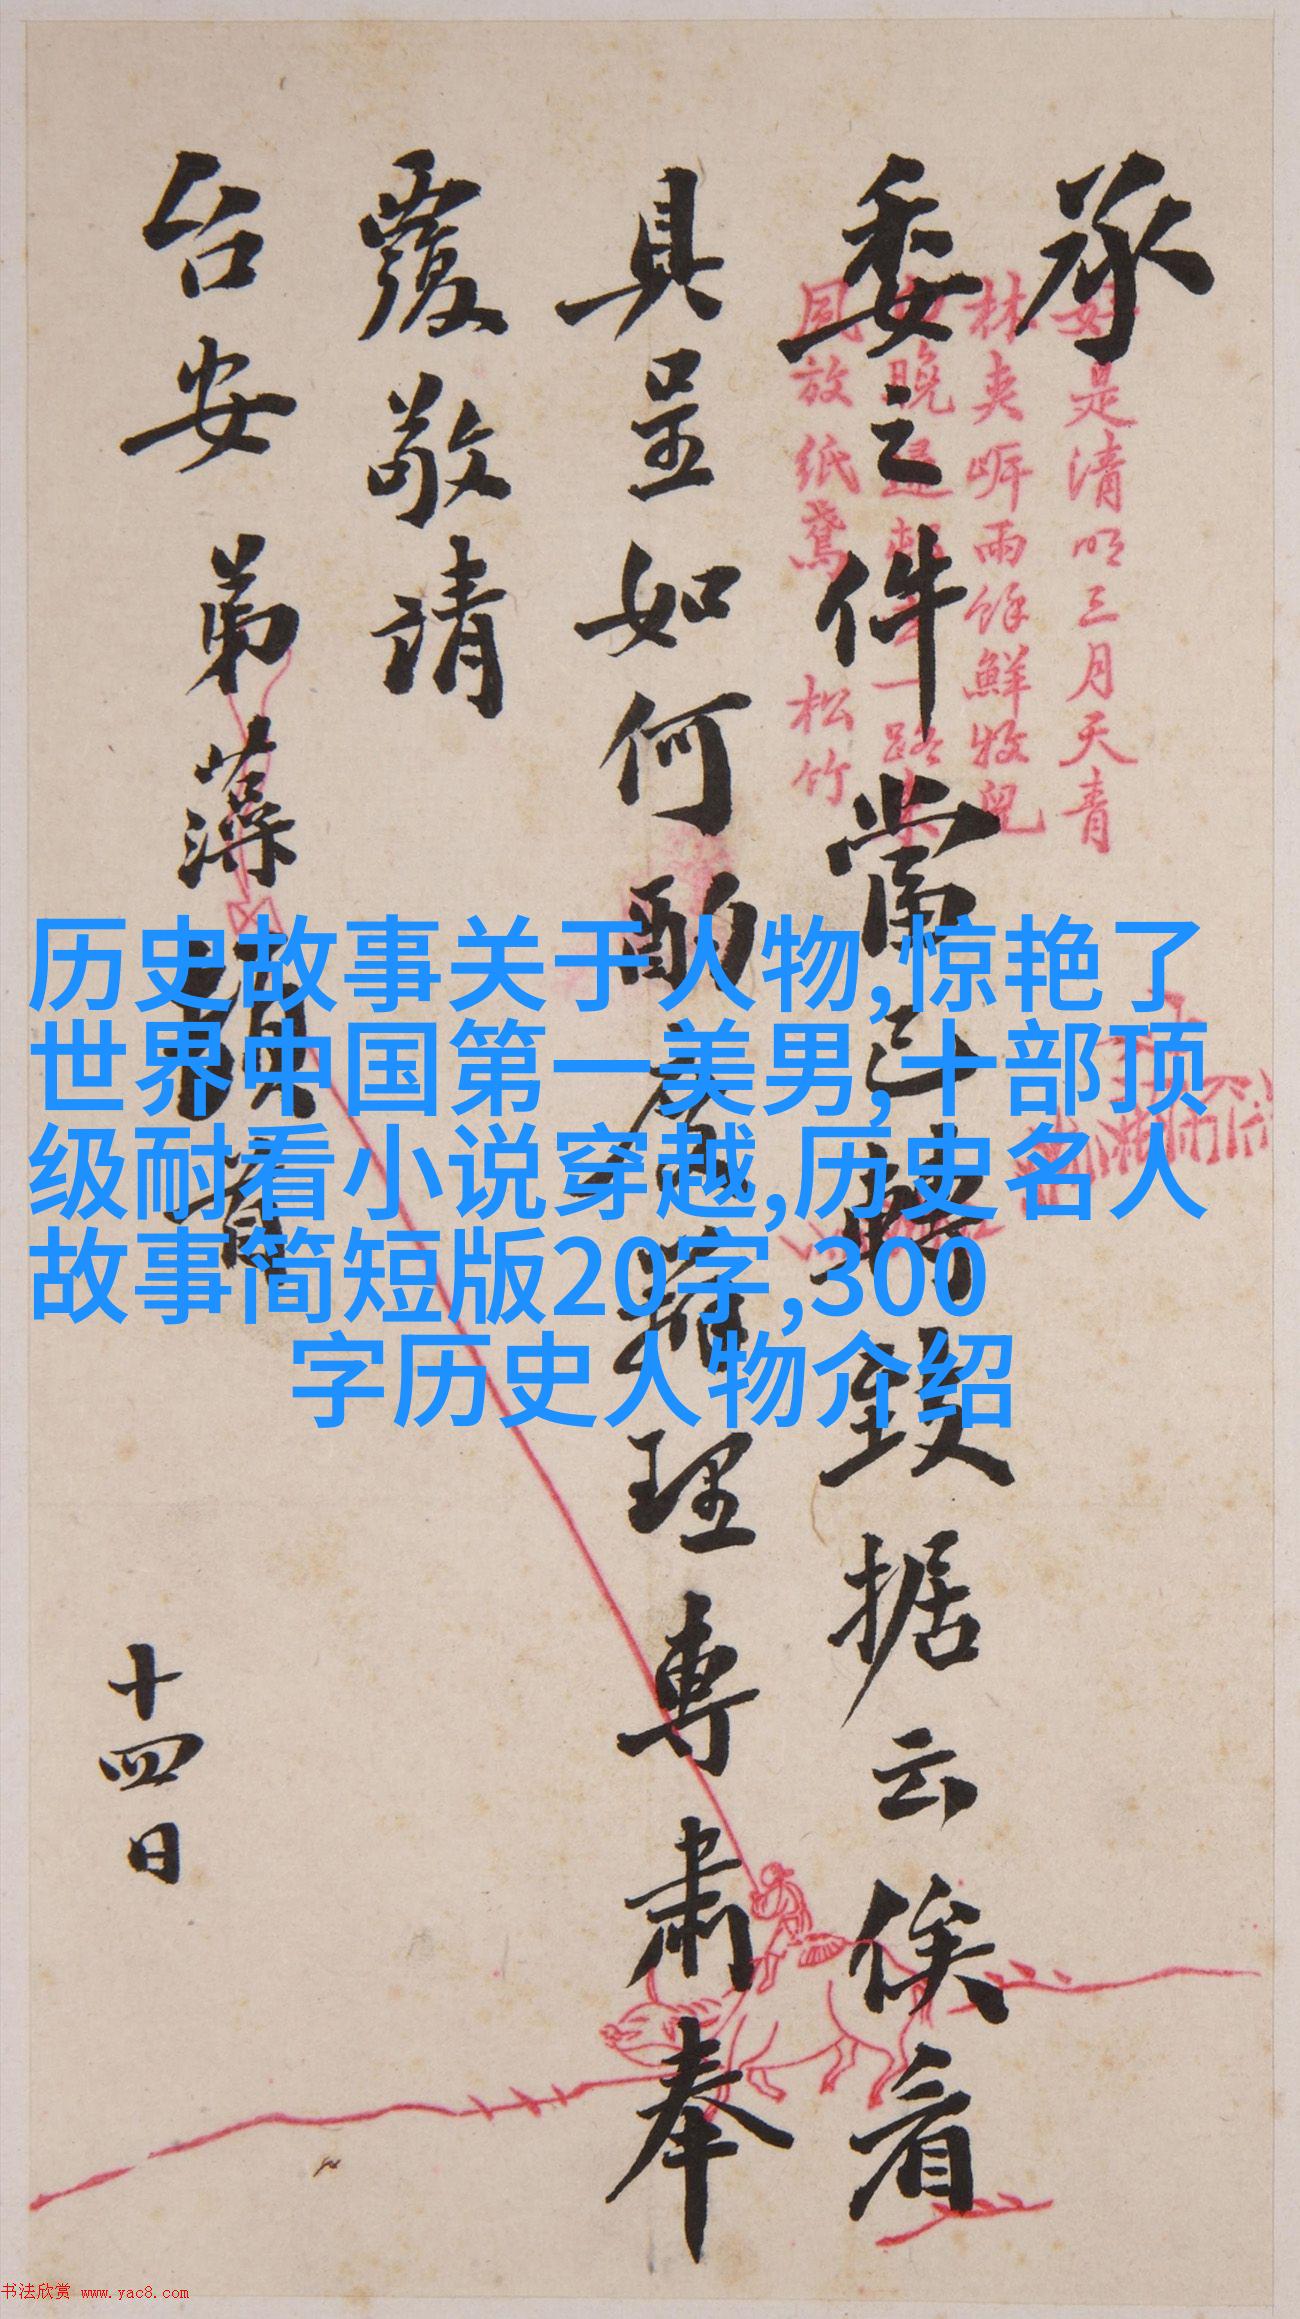 承
委之件當已轉致据云俟看
具呈如何酌
理專肅奉
覆敬請
台安 弟藻
十四日
好是清明三月天青
林夾岸雨餘鮮牧兒
晚
同放紙鳶 松竹
历史故事关于人物,惊艳了
世界中国第一美男,十部顶
级耐看小说穿越,历史名人
故事简短版20字,300
字历史人物介绍
书法欣赏 www.yac8.com